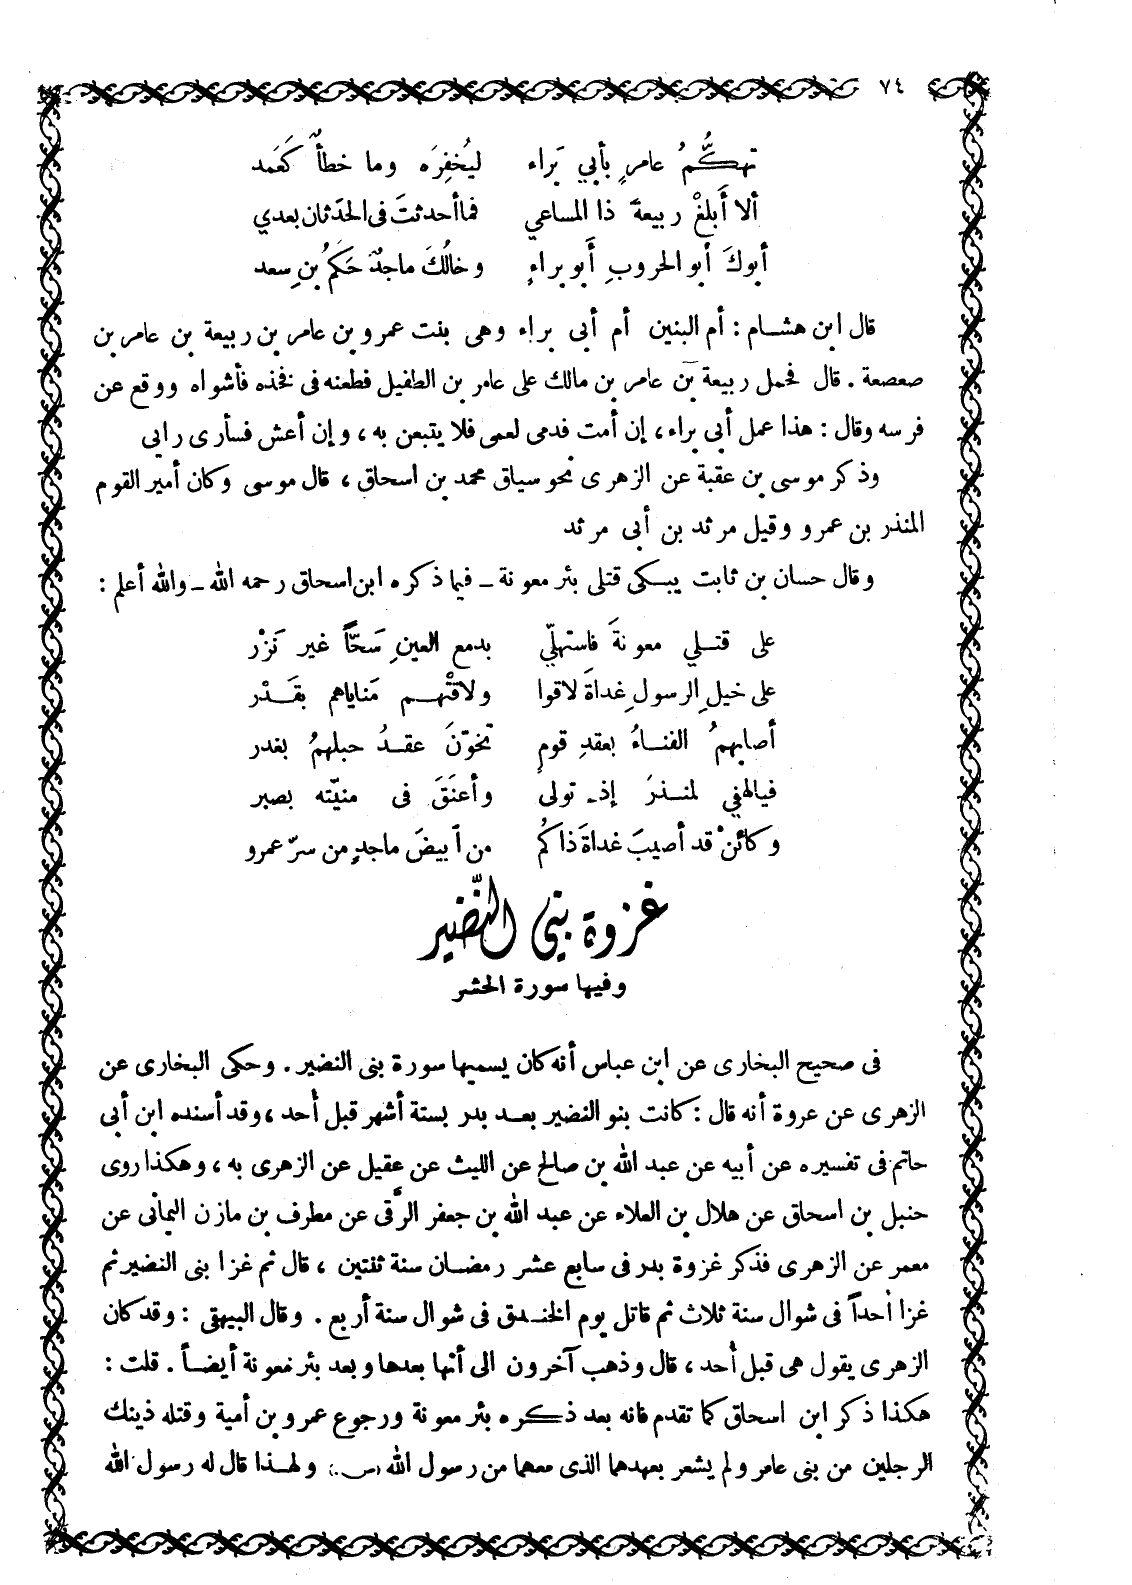 ٧٤
تهكُّمُ عامرٍ بأبي بَراء ليُخفِرَه وما خطأٌ كَعَمد
ألا أَبلغْ ربيعةَ ذا المساعي فما أحدثتَ فى الحَدَثان بعدي
أبوكَ أبو الحروبِ أَبو براءٍ وخالُكَ ماجدٌ حَكَمُ بنِ سعد
قال ابن هشام : أم البنين أم أبى براء وهى بنت عمرو بن عامر بن ربيعة بن عامر بن
صعصعة . قال فحمل ربيعة بن عامر بن مالك على عامر بن الطفيل فطعنه فى فخذه فأشواه ووقع عن
فرسه وقال : هذا عمل أبى براء ، إن أمت فدمى لعمى فلا يتبعن به ، وإن أعش فسأرى رابى
وذكر موسى بن عقبة عن الزهرى نحو سياق محمد بن اسحاق ، قال موسى وكان أمير القوم
المنذر بن عمرو وقيل مرثد بن أبى مرثد
وقال حسان بن ثابت يبكى قتلى بئر معونة ــ فيما ذكره ابن اسحاق رحمه الله ــ والله أعلم :
على قتلي معونةَ فاستهلّي بدمع العينِ سَحّاً غير نَزْر
على خيلِ الرسولِ غداةَ لاقوا ولاقتْهم مَناياهم بقَدْر
أصابهمُ الفناءُ بعقدِ قومٍ تخوّنَ عقدُ حبلهمُ بغدر
فيالهفي لمنذرَ إذ تولى وأعنَقَ فى منيّته بصبر
وكائنْ قد أصيبَ غداةَ ذاكُم من أبيضَ ماجدٍ من سرّ عمرو
غزوة بني النّضير
وفيها سورة الحشر
فى صحيح البخارى عن ابن عباس أنه كان يسميها سورة بنى النضير . وحكى البخارى عن
الزهرى عن عروة أنه قال : كانت بنو النضير بعد بدر بستة أشهر قبل أُحد ، وقد أسنده ابن أبى
حاتم فى تفسيره عن أبيه عن عبد الله بن صالح عن الليث عن عقيل عن الزهرى به ، وهكذا روى
حنبل بن اسحاق عن هلال بن العلاء عن عبد الله بن جعفر الرَّقى عن مطرف بن مازن اليمانى عن
معمر عن الزهرى فذكر غزوة بدر فى سابع عشر رمضان سنة ثنتين ، قال ثم غزا بنى النضير ثم
غزا أحداً فى شوال سنة ثلاث ثم قاتل يوم الخندق فى شوال سنة أربع . وقال البيهقى : وقد كان
الزهرى يقول هى قبل أُحد ، قال وذهب آخرون الى أنها بعدها وبعد بئر معونة أيضاً . قلت :
هكذا ذكر ابن اسحاق كما تقدم فانه بعد ذكره بئر معونة ورجوع عمرو بن أمية وقتله ذينك
الرجلين من بنى عامر ولم يشعر بعهدهما الذى معهما من رسول الله (س.) ولهذا قال له رسول الله